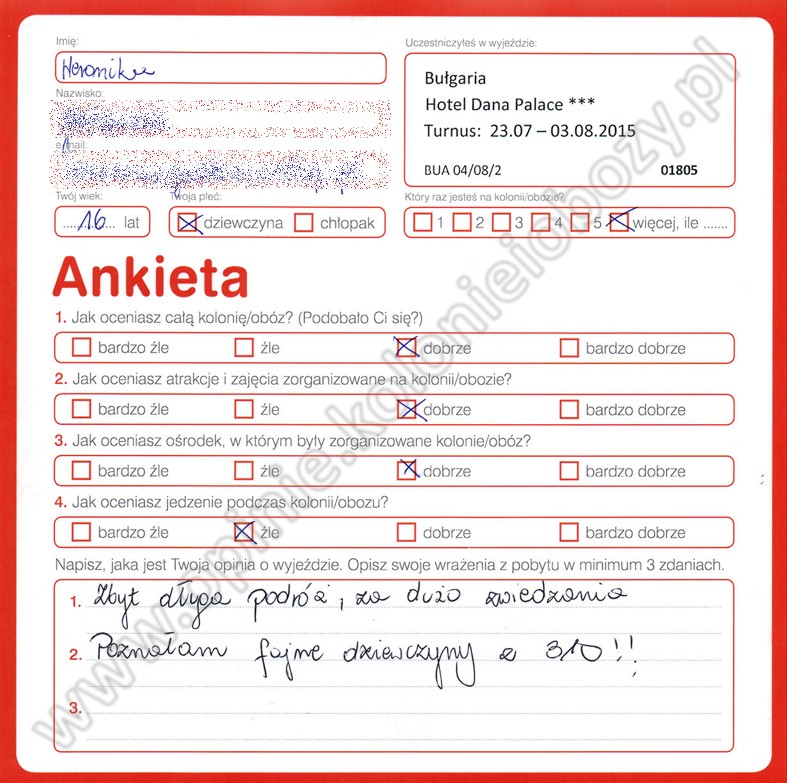 Imię:
Weronika
Nazwisko:
e-mail:
Twój wiek:
....16.... lat
Twoja płeć:
dziewczyna chłopak
Uczestniczyłeś w wyjeździe:
Bułgaria
Hotel Dana Palace ***
Turnus: 23.07 – 03.08.2015
BUA 04/08/2 01805
Który raz jesteś na kolonii/obozie?
1 2 3 4 5 więcej, ile .......
Ankieta
1. Jak oceniasz całą kolonię/obóz? (Podobało Ci się?)
bardzo źle źle dobrze bardzo dobrze
2. Jak oceniasz atrakcje i zajęcia zorganizowane na kolonii/obozie?
bardzo źle źle dobrze bardzo dobrze
3. Jak oceniasz ośrodek, w którym były zorganizowane kolonie/obóz?
bardzo źle źle dobrze bardzo dobrze
4. Jak oceniasz jedzenie podczas kolonii/obozu?
bardzo źle źle dobrze bardzo dobrze
Napisz, jaka jest Twoja opinia o wyjeździe. Opisz swoje wrażenia z pobytu w minimum 3 zdaniach.
1. Zbyt długa podróż, za dużo zwiedzania
2. Poznałam fajne dziewczyny z 310!!
3.
www.opinie.kolonieiobozy.pl